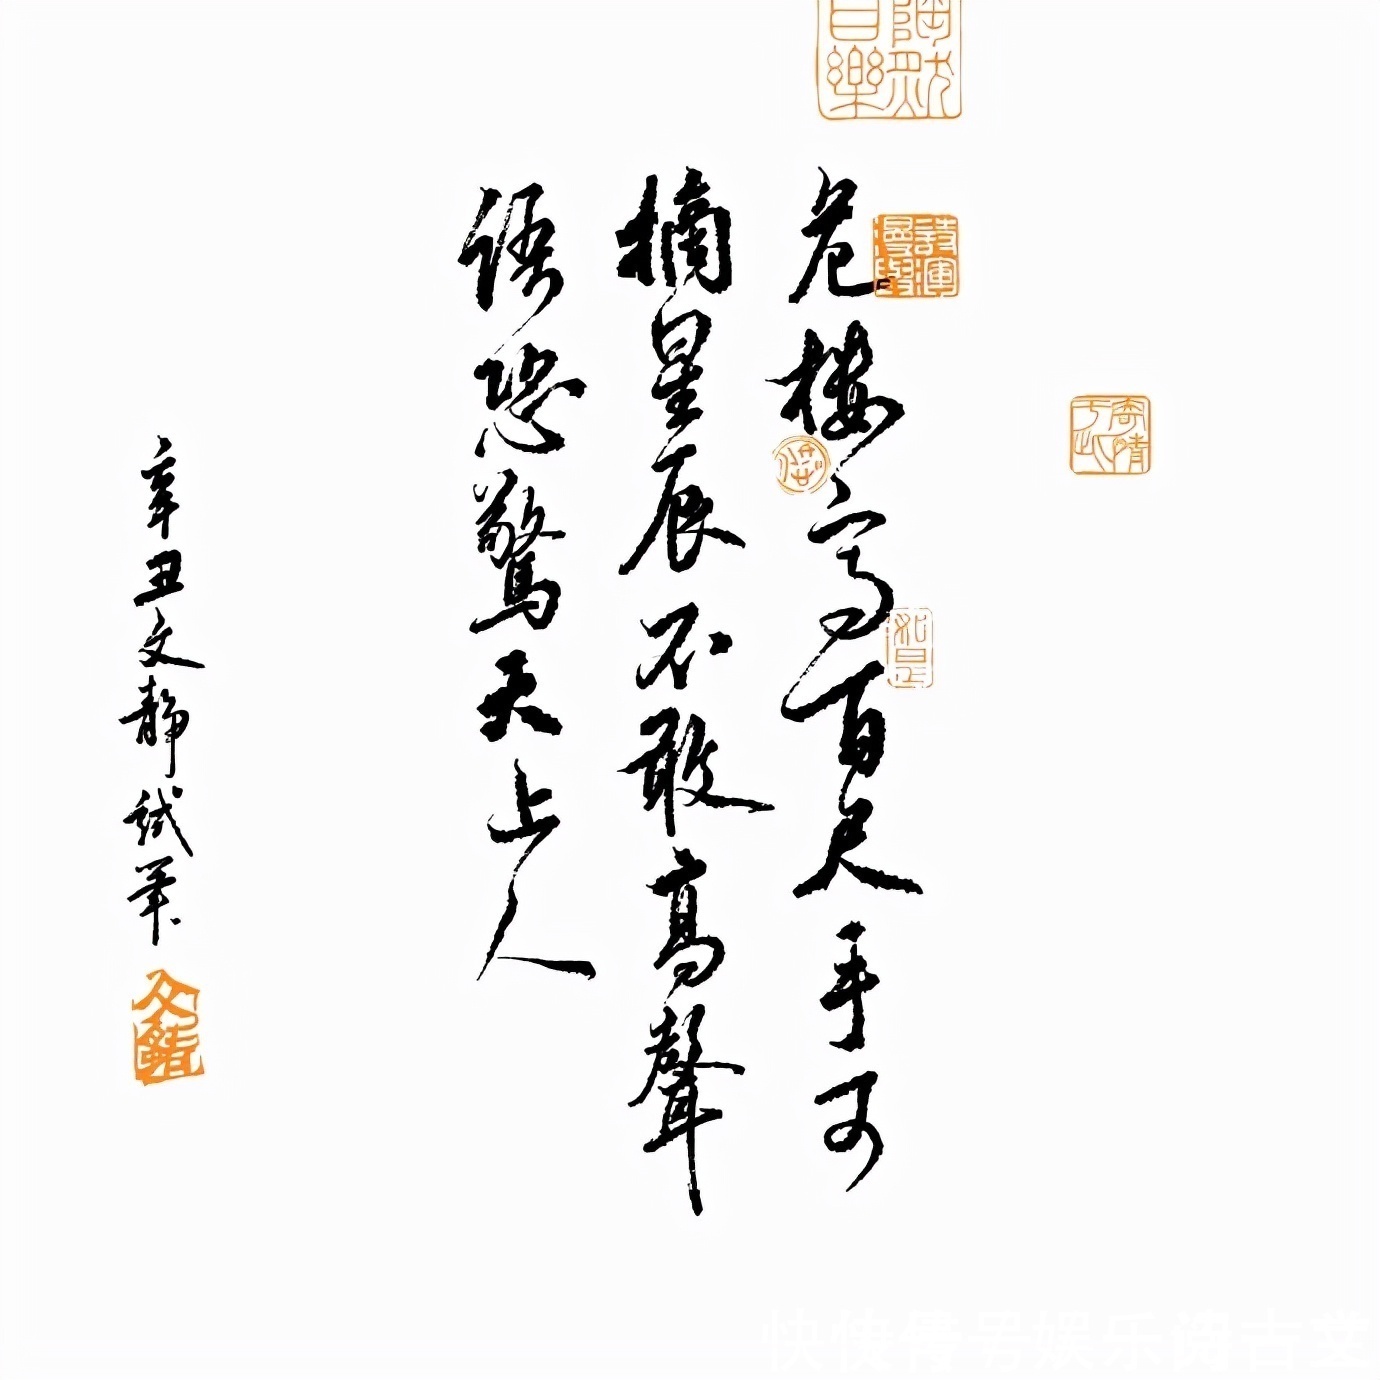 危楼高百尺手可
摘星辰不敢高聲
語恐驚天上人
辛丑文静試筆
文靜